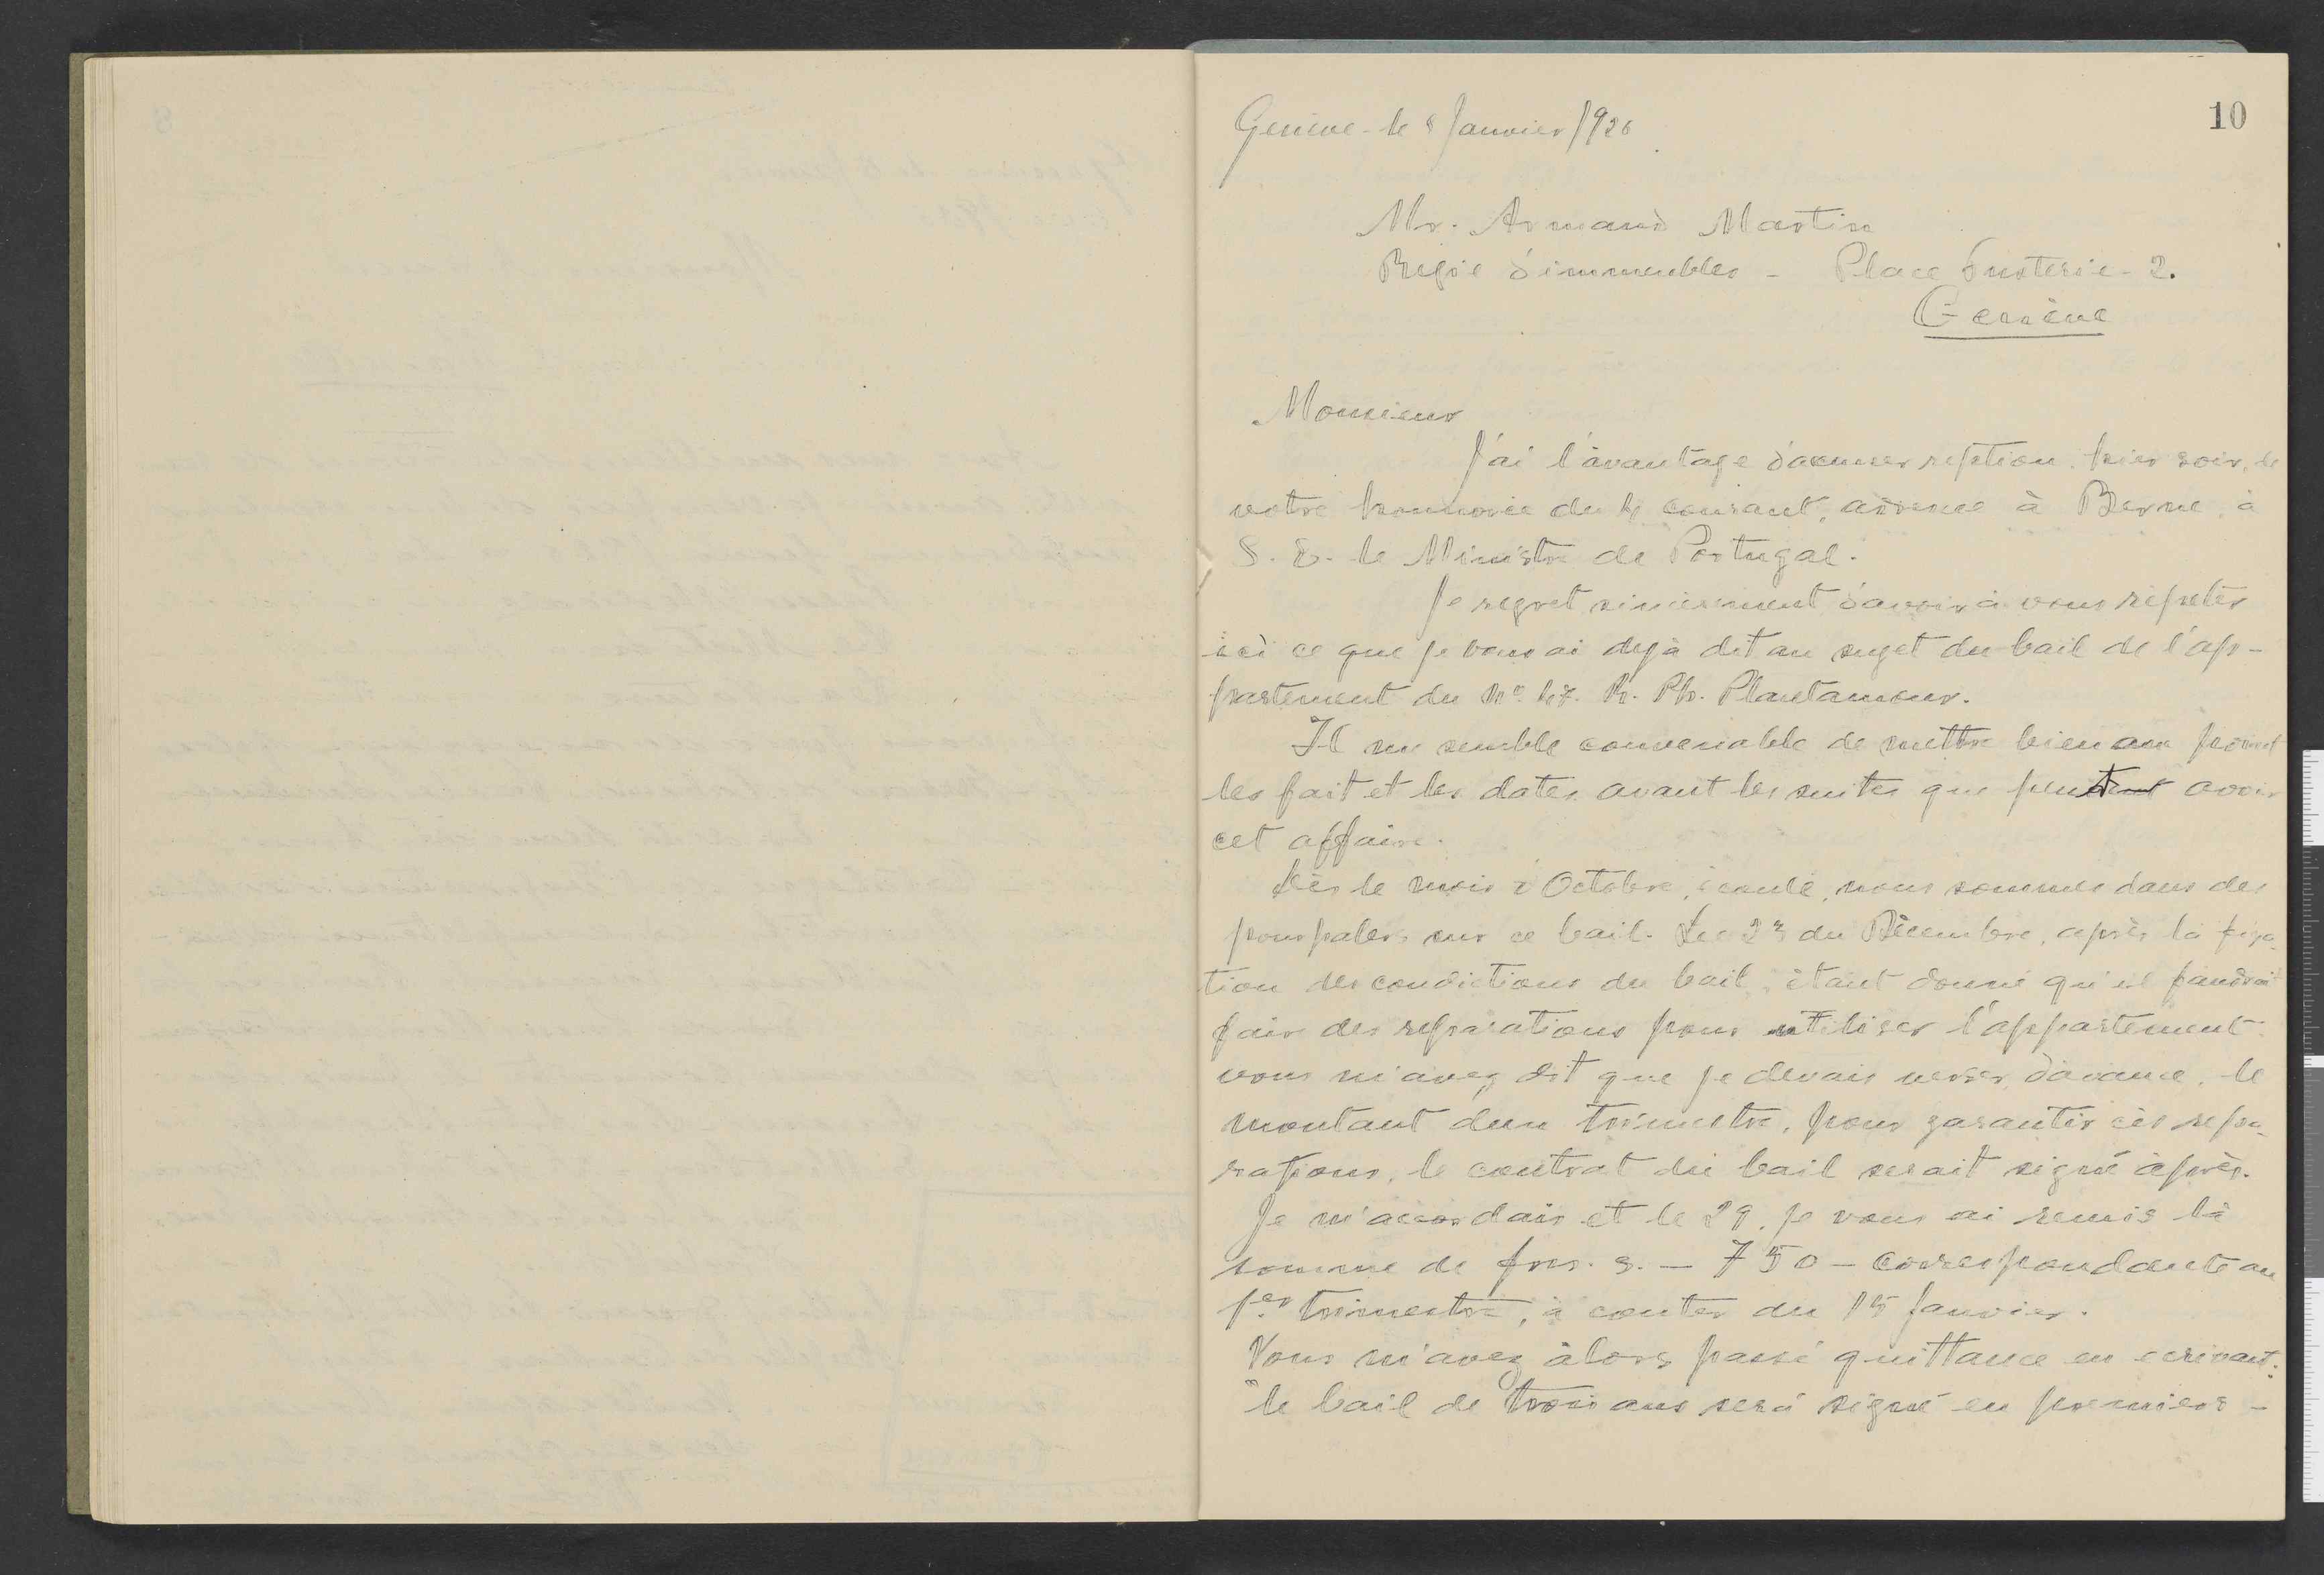 10
Genève le 8 Janvier 1926
Mr. Armand Martin
Regie d'immeubles - Place Fusterie - 2.
Genève
Monsieur
J'ai l'àvantage d'accuser reption, hier soir, de
votre honnorée du 4 courant, adressé à Berne, à
S. E. le Ministre de Portugal.
Je regret sincèrement d'avoir à vous répéter
ici ce que je vous ai dejà dit au suget du bail de l'ap-
partement du nº 47. R. Ph. Plantamour.
Il me semble convenable de mettre bien au point
les fait et les dates avant les suites que peut avoir
cet affaire.
Dès le mois d'Octobre, écoulé, nous sommes dans des
pourpalers sur ce bail. Le 23 du Décembre, après la fixa-
tion des condictions du bail, étant donné qu'il faudrait
faire des reparations pour utiliser l'appartement
vous m'avez dit que je devais verser, d'avance, le
montant d'un trimestre, pour garantir ces repa-
rations, le contrat du bail serait signé àprès.
Je m'accordais et le 29, je vous ai remis la
somme de frcs. s. - 750 - correspondante au
1er trimestre, à conter du 15 Janvier.
Vous m'avez àlors passé quittance en ecrivant:
"le bail de trois ans será signé en premiers -